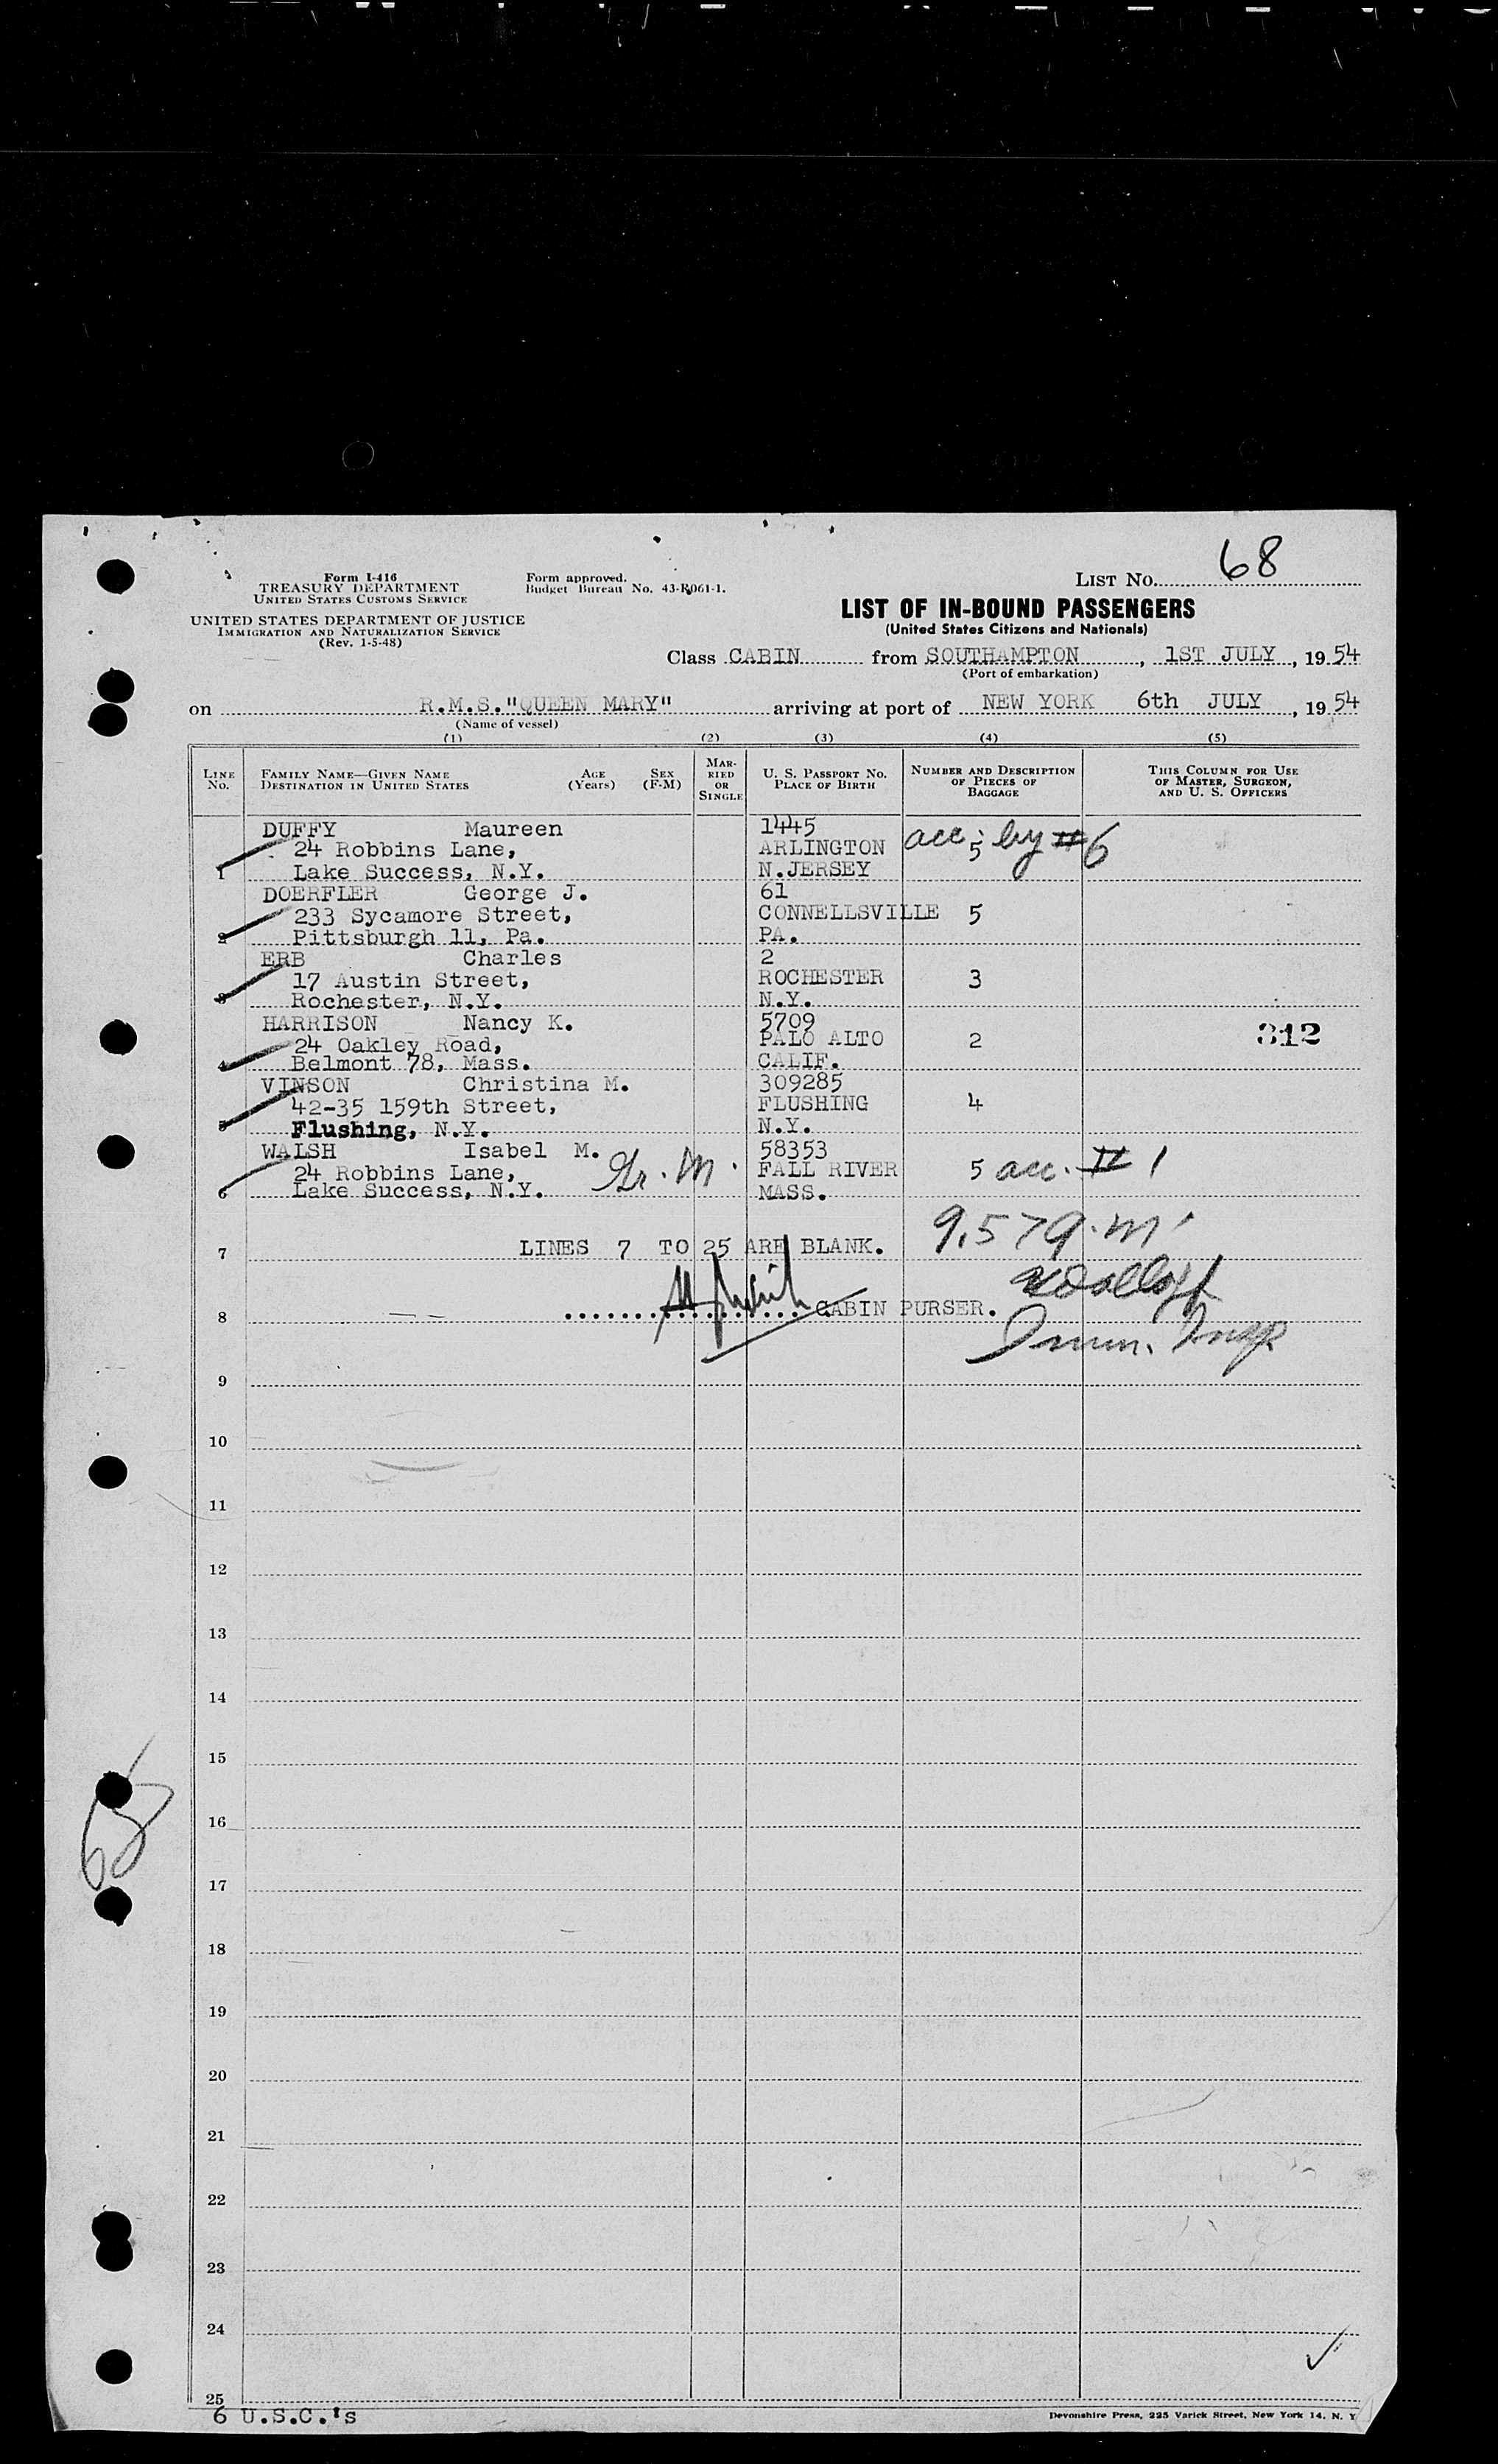 68
Form I-416
TREASURY DEPARTMENT
UNITED STATES CUSTOMS SERVICE
UNITED STATES DEPARTMENT OF JUSTICE
IMMIGRATION AND NATURALIZATION SERVICE
(Rev. 1-5-48)
Form approved.
Budget Bureau No. 43-R061-1.
LIST NO.
LIST OF IN-BOUND PASSENGERS
(United States Citizens and Nationals)
Class CABIN from SOUTHAMPTON, 1ST JULY, 1954
(Port of embarkation)
on R.M.S."QUEEN MARY" arriving at port of NEW YORK 6th JULY, 1954
(Name of vessel)
(1) (2) (3) (4) (5)
LINE NO. FAMILY NAME—GIVEN NAME DESTINATION IN UNITED STATES AGE (Years) SEX (F-M) MARRIED OR SINGLE U. S. PASSPORT NO. PLACE OF BIRTH NUMBER AND DESCRIPTION OF PIECES OF BAGGAGE THIS COLUMN FOR USE OF MASTER, SURGEON, AND U. S. OFFICERS
DUFFY Maureen 1445
24 Robbins Lane, ARLINGTON 5 acc. by #6
1 Lake Success, N.Y. N.JERSEY
DOERFLER George J. 61
233 Sycamore Street, CONNELLSVILLE 5
2 Pittsburgh 11, Pa. PA.
ERB Charles 2
17 Austin Street, ROCHESTER 3
3 Rochester, N.Y. N.Y.
HARRISON Nancy K. 5709
24 Oakley Road, PALO ALTO 2 312
4 Belmont 78, Mass. CALIF.
VINSON Christina M. 309285
42-35 159th Street, FLUSHING 4
5 Flushing, N.Y. N.Y.
WALSH Isabel M. 58353
24 Robbins Lane, Gr. M. FALL RIVER 5 acc. # 1
6 Lake Success, N.Y. MASS.
7 LINES 7 TO 25 ARE BLANK.
8 CABIN PURSER.
Imm. Insp.
9
10
11
12
13
14
15
16
65
17
18
19
20
21
22
23
24
25
6 U.S.C.'s
Devonshire Press, 225 Varick Street, New York 14, N. Y.